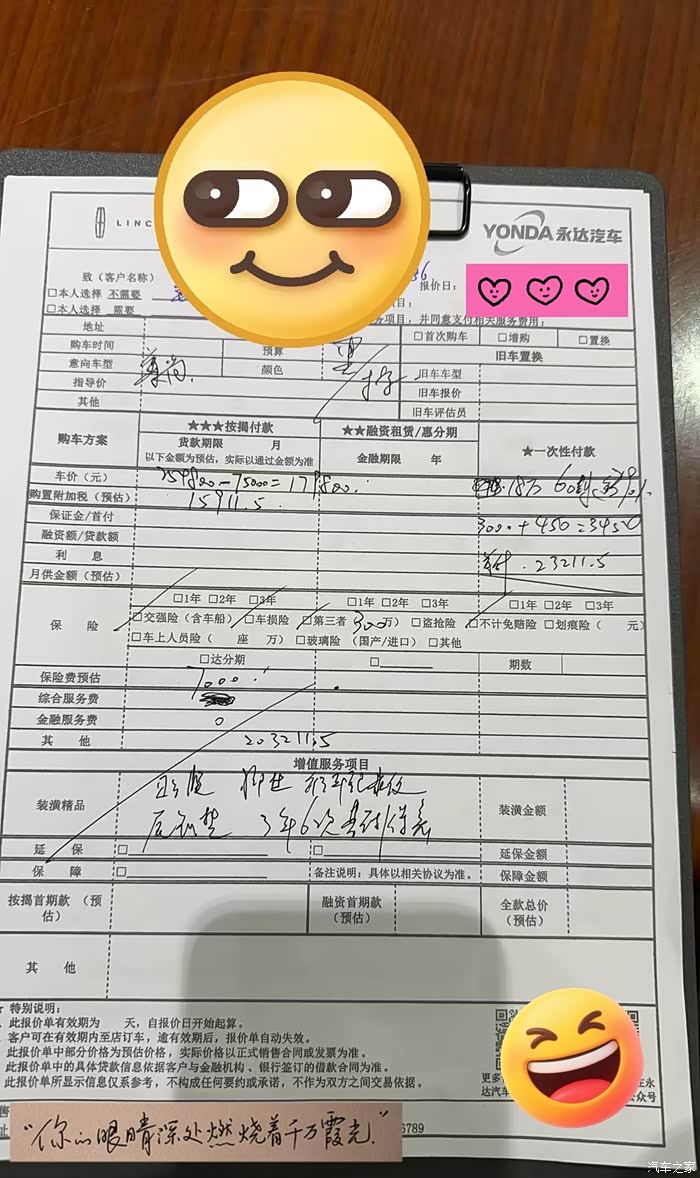 LINC
YONDA 永达汽车
致（客户名称）
报价日：
□本人选择 不需要
□本人选择 需要
务项目，并同意支付相关服务费用：
地址
□首次购车 □增购 □置换
购车时间 预算 旧车置换
意向车型 颜色 旧车车型
指导价 旧车报价
其他 旧车评估员
购车方案 ★★★按揭付款 ★★融资租赁/惠分期 ★一次性付款
贷款期限 月 金融期限 年
以下金额为预估，实际以通过金额为准
车价（元）
购置附加税（预估） 15911.5
保证金/首付 3000+450=3450
融资额/贷款额
利 息 首付. 23211.5
月供金额（预估）
□1年 □2年 □3年 □1年 □2年 □3年 □1年 □2年 □3年
保 险 □交强险（含车船） □车损险 □第三者 300 万） □盗抢险 □不计免赔险 □划痕险（ 元）
□车上人员险（ 座 万） □玻璃险（国产/进口） □其他
□达分期 □ 期数
保险费预估 7000
综合服务费
金融服务费 0
其 他 203211.5
增值服务项目
装潢精品 装潢金额
3年6次基础保养
延 保 □ □ 延保金额
保 障 □ 备注说明：具体以相关协议为准。 保障金额
按揭首期款（预估） 融资首期款（预估） 全款总价（预估）
其 他
★ 特别说明：
此报价单有效期为 天，自报价日开始起算。
客户可在有效期内至店订车，逾有效期后，报价单自动失效。
此报价单中部分价格为预估价格，实际价格以正式销售合同或发票为准。
此报价单中的具体贷款信息依据客户与金融机构、银行签订的借款合同为准。
此报价单所显示信息仅系参考，不构成任何要约或承诺，不作为双方之间交易依据。
更多
达汽车 公众号
“你的眼睛深处燃烧着千万霞光”
6789
汽车之家